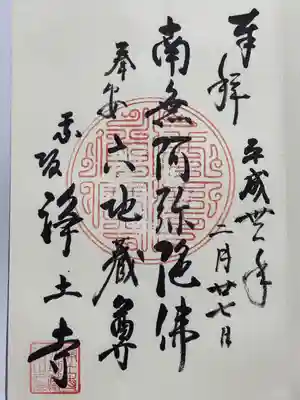 奉拝
平成卅一年
二月廿七日
南無阿弥陀佛
奉安
六地蔵尊
赤坂
浄土寺